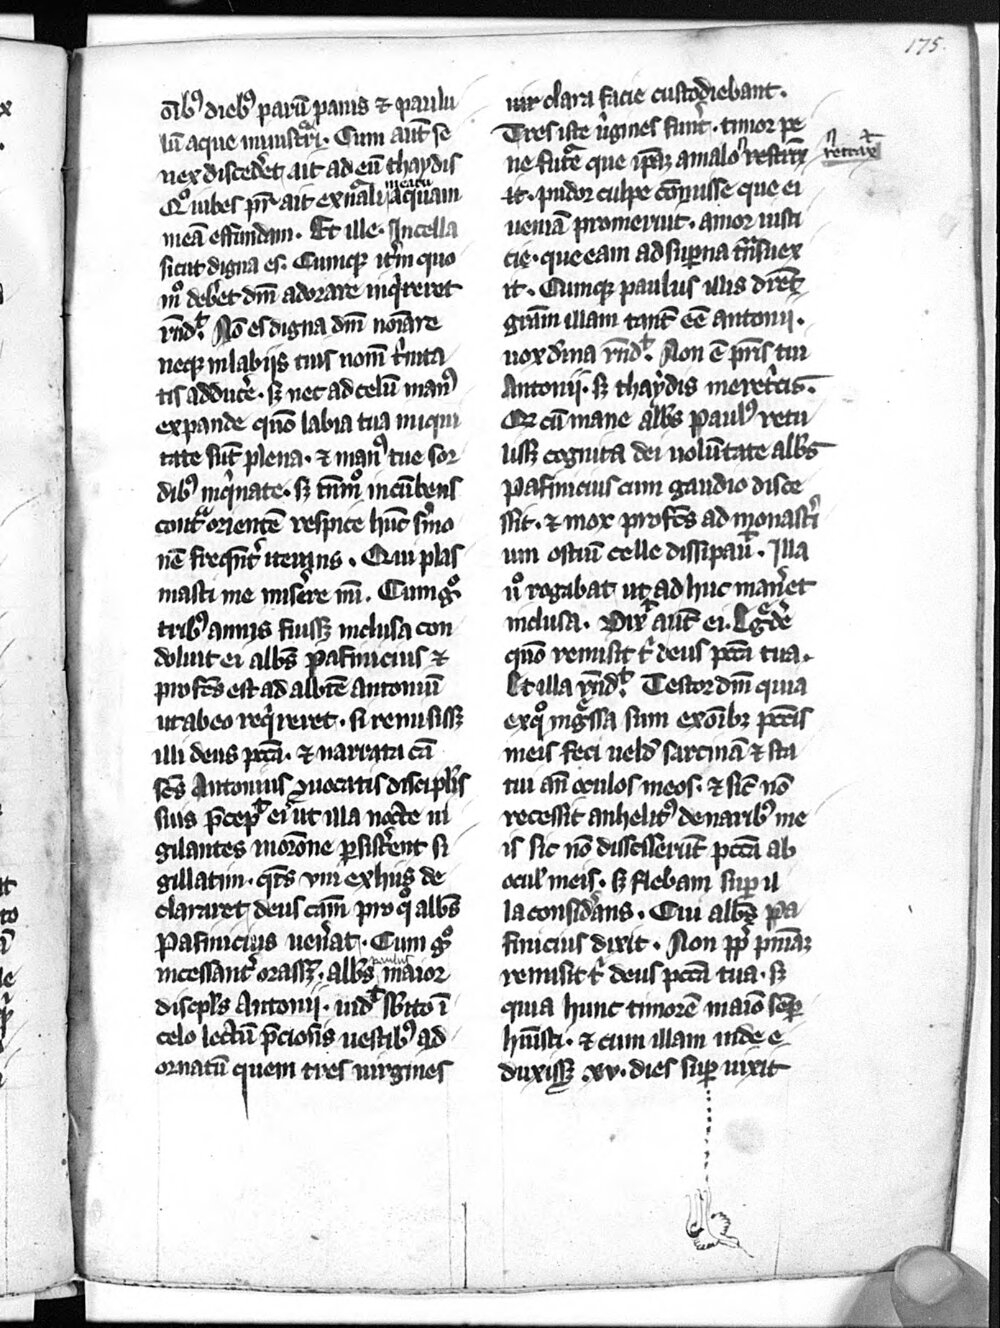 175.
oībꝫ diebꝫ parū panis ⁊ paulu
lū aque ministrari. Cum aūt se
nex discederet ait ad eū thaydis
Qͦ iubes pr̄ ait ex naturali meatu aquam
meā effundam. Et ille. In cella
sicut digna es. Cumqꝫ itm̄ quo
mͦ deberet dm̄ adorare inqͥreret
rn̄dꝫ. Nō es digna dm̄ noīare
neqꝫ in labijs tuis nomē tͥnita
tis adducere. sꝫ nec ad celū manꝰ
expande qn̄o labia tua iniqui
tate sūt plena. ⁊ manꝰ tue sor
dibꝫ inqͥnate. sꝫ tm̄mͦ incūbens
contͣ orientē respice hūc sͬmo
nē freqn̄tͬ iterans. Qui plas
masti me miserere mi. Cum gͦ
tribꝫ annis fuissꝫ inclusa con
doluit ei abbs pafinicius ⁊
profcs̄ est ad abbtē Antoniū
ut ab eo reqͥreret. si remisissꝫ
illi deus pcc̄a. ⁊ narrata cā
scs̄ Antonius ꝯuocatis discipl̓is
suis p̄cepͭ ei^s ut illa nocte ui
gilantes in orōne ꝑsisterent si
gillatim. qͣtꝰ vni ex hijs de
clararet deus cām pro qͣ abbs
Pafinicius uenerat. Cum gͦ
incessantͬ orassꝫ. abbs paulus maior
discipl̓s Antonii. uidͭ sbito ī
celo lectū p̄ciosis uestibꝫ ad
ornatū quem tres uirgines
uir clara facie custodiebant.
Tres iste uͥgines fuerūt. timor pe
ne future que ip̄aꝫ a malo n̄ restrīx
n̄ retrax̄
it. pudor culpe cōmisse que ei
ueniā promeruit. amor iusti
cie. que eam ad superna tn̄suex
it. Cumqꝫ paulus illis diceret
grām illam tantū eē antonii.
uox diuina rn̄dꝫ. Non ē pr̄is tui
Antonij. sꝫ thaydis meretͥcis.
Qr cū mane abbs Paulꝰ retu
lissꝫ cognita dei uolūtate abbs
pafinicius cum gaudio disce
ssit. ⁊ mox profcs̄ ad monasteri
um ostiū celle dissipauͭ. Illa
uͦ rogabat ut ad huc maneret
inclusa. Dixͭ aūt ei. Egͬdere
qn̄o remisit tͥ deus pcc̄a tua.
Et illa rn̄dꝫ. Testor dm̄ quia
ex qͦ ingͬssa sum ex oībꝫ pcc̄is
meis feci uelud sarcinā ⁊ sta
tui an̄ oculos meos. ⁊ sic̄ nō
recessit anhelitꝰ de naribꝫ me
is sic nō discesserūt pcc̄a ab
ocul̓ meis. sꝫ flebam suꝑ il
la considerans. Cui abbs pa
finicius dixit. Non ꝓpͬ pn̄iaꝫ
remisit tͥ deus pcc̄a tua. sꝫ
quia hunc timorē in aīo semꝑ
hūisti. ⁊ cum illam inde e
duxissꝫ .xv. dies suꝑ uixit